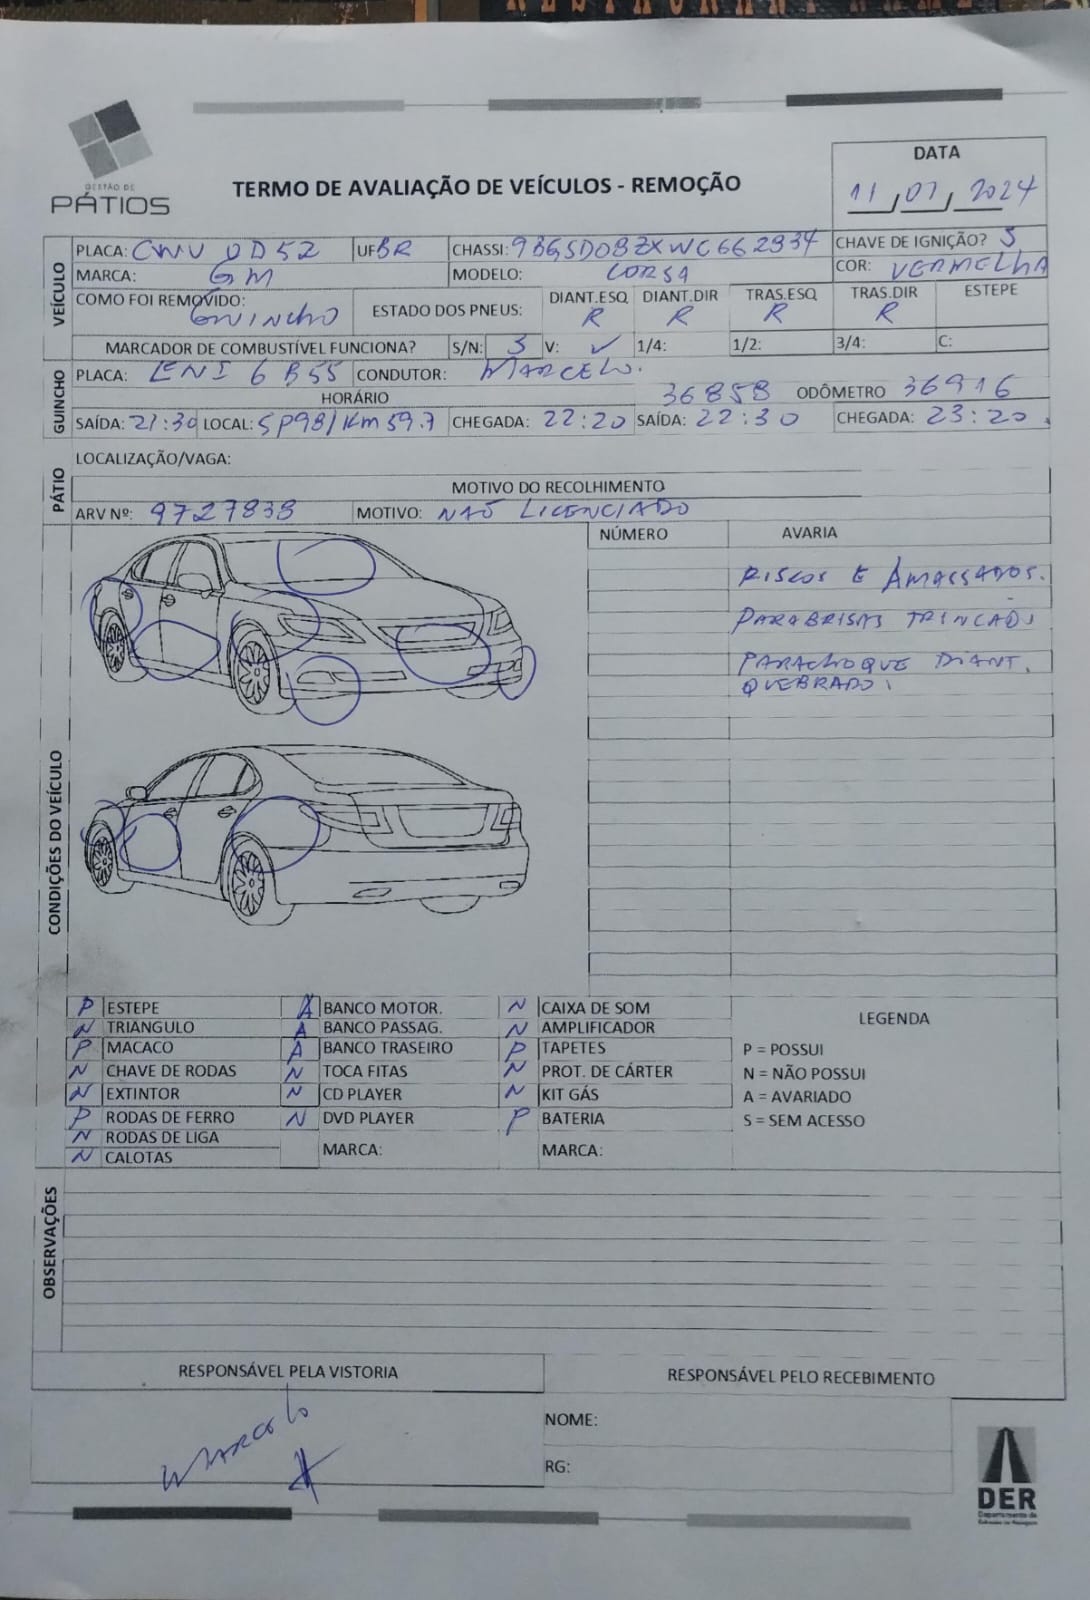 GESTÃO DE
PÁTIOS
TERMO DE AVALIAÇÃO DE VEÍCULOS - REMOÇÃO
DATA
11/07/2024
VEÍCULO
PLACA: CWV 0D52 UF BR CHASSI: 9BGSD08ZXWC662934 CHAVE DE IGNIÇÃO? S
MARCA: GM MODELO: CORSA COR: VERMELHA
COMO FOI REMOVIDO: GUINCHO ESTADO DOS PNEUS: DIANT.ESQ R DIANT.DIR R TRAS.ESQ R TRAS.DIR R ESTEPE
MARCADOR DE COMBUSTÍVEL FUNCIONA? S/N: S V: ✓ 1/4: 1/2: 3/4: C:
GUINCHO
PLACA: ENI 6B55 CONDUTOR: MARCELO.
HORÁRIO 36858 ODÔMETRO 36916
SAÍDA: 21:30 LOCAL: SP98/Km 59.7 CHEGADA: 22:20 SAÍDA: 22:30 CHEGADA: 23:20.
PÁTIO
LOCALIZAÇÃO/VAGA:
MOTIVO DO RECOLHIMENTO
ARV Nº: 9727838 MOTIVO: NAÕ LICENCIADO
CONDIÇÕES DO VEÍCULO
NÚMERO AVARIA
RISCOS E AMASSADOS.
PARABRISAS TRINCADO
PARACHOQUE DIANT.
QUEBRADO
P ESTEPE A BANCO MOTOR. N CAIXA DE SOM
N TRIANGULO A BANCO PASSAG. N AMPLIFICADOR
P MACACO A BANCO TRASEIRO P TAPETES
N CHAVE DE RODAS N TOCA FITAS N PROT. DE CÁRTER
N EXTINTOR N CD PLAYER N KIT GÁS
P RODAS DE FERRO N DVD PLAYER P BATERIA
N RODAS DE LIGA MARCA: MARCA:
N CALOTAS
LEGENDA
P = POSSUI
N = NÃO POSSUI
A = AVARIADO
S = SEM ACESSO
OBSERVAÇÕES
RESPONSÁVEL PELA VISTORIA RESPONSÁVEL PELO RECEBIMENTO
MARCELO
NOME:
RG:
DER